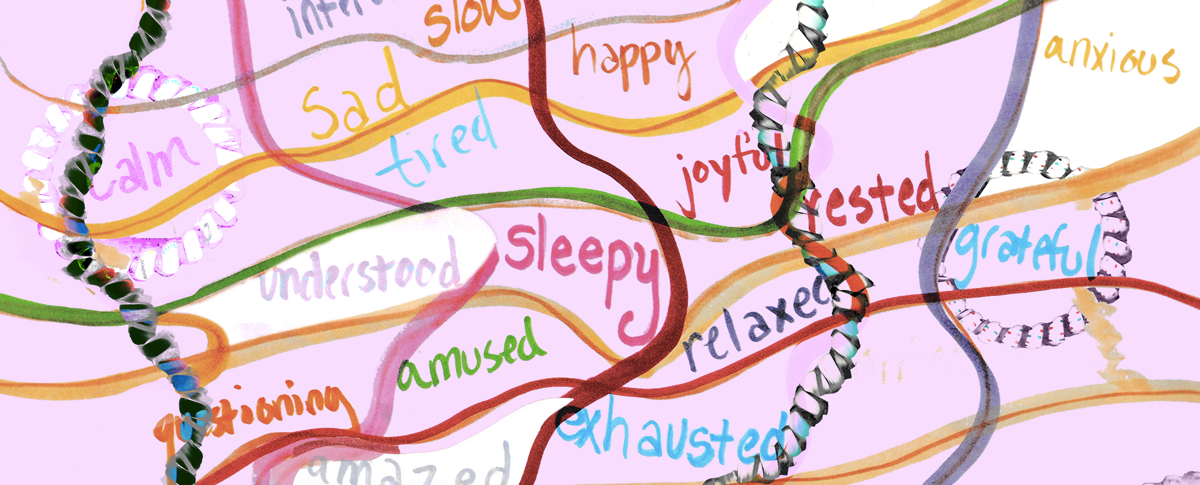 slow
happy
anxious
sad
tired
calm
joyful
rested
sleepy
grateful
understood
relaxed
amused
questioning
exhausted
amazed